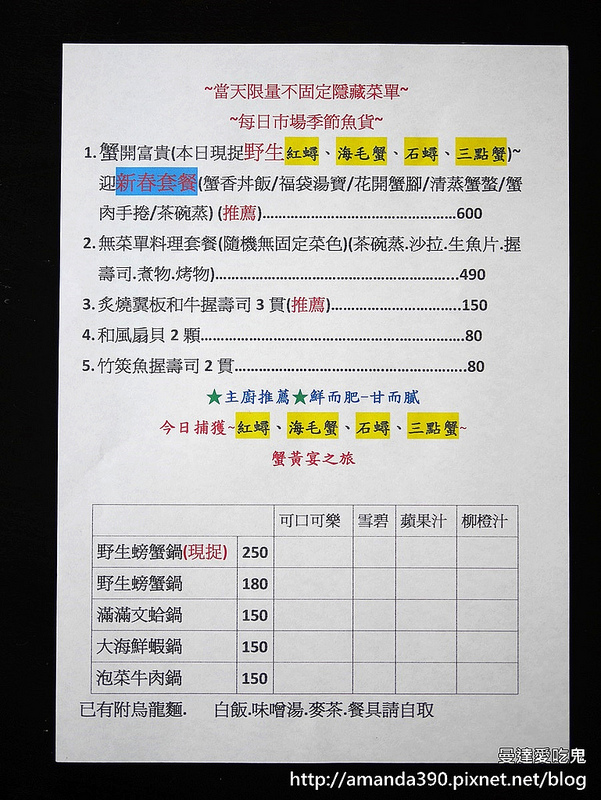 ~當天限量不固定隱藏菜單~
~每日市場季節魚貨~
1. 蟹開富貴(本日現捉野生紅蟳、海毛蟹、石蟳、三點蟹)~
迎新春套餐(蟹香丼飯/福袋湯寶/花開蟹腳/清蒸蟹螯/蟹
肉手捲/茶碗蒸) (推薦)........................................600
2. 無菜單料理套餐(隨機無固定菜色)(茶碗蒸.沙拉.生魚片.握
壽司.煮物.烤物)..................................................490
3. 炙燒翼板和牛握壽司 3 貫(推薦)...........................150
4. 和風扇貝 2 顆......................................................80
5. 竹筴魚握壽司 2 貫................................................80
★主廚推薦★鮮而肥-甘而膩
今日捕獲~紅蟳、海毛蟹、石蟳、三點蟹~
蟹黃宴之旅
可口可樂 雪碧 蘋果汁 柳橙汁
野生螃蟹鍋(現捉) 250
野生螃蟹鍋 180
滿滿文蛤鍋 150
大海鮮蝦鍋 150
泡菜牛肉鍋 150
已有附烏龍麵. 白飯.味噌湯.麥茶.餐具請自取
曼達愛吃鬼
http://amanda390.pixnet.net/blog